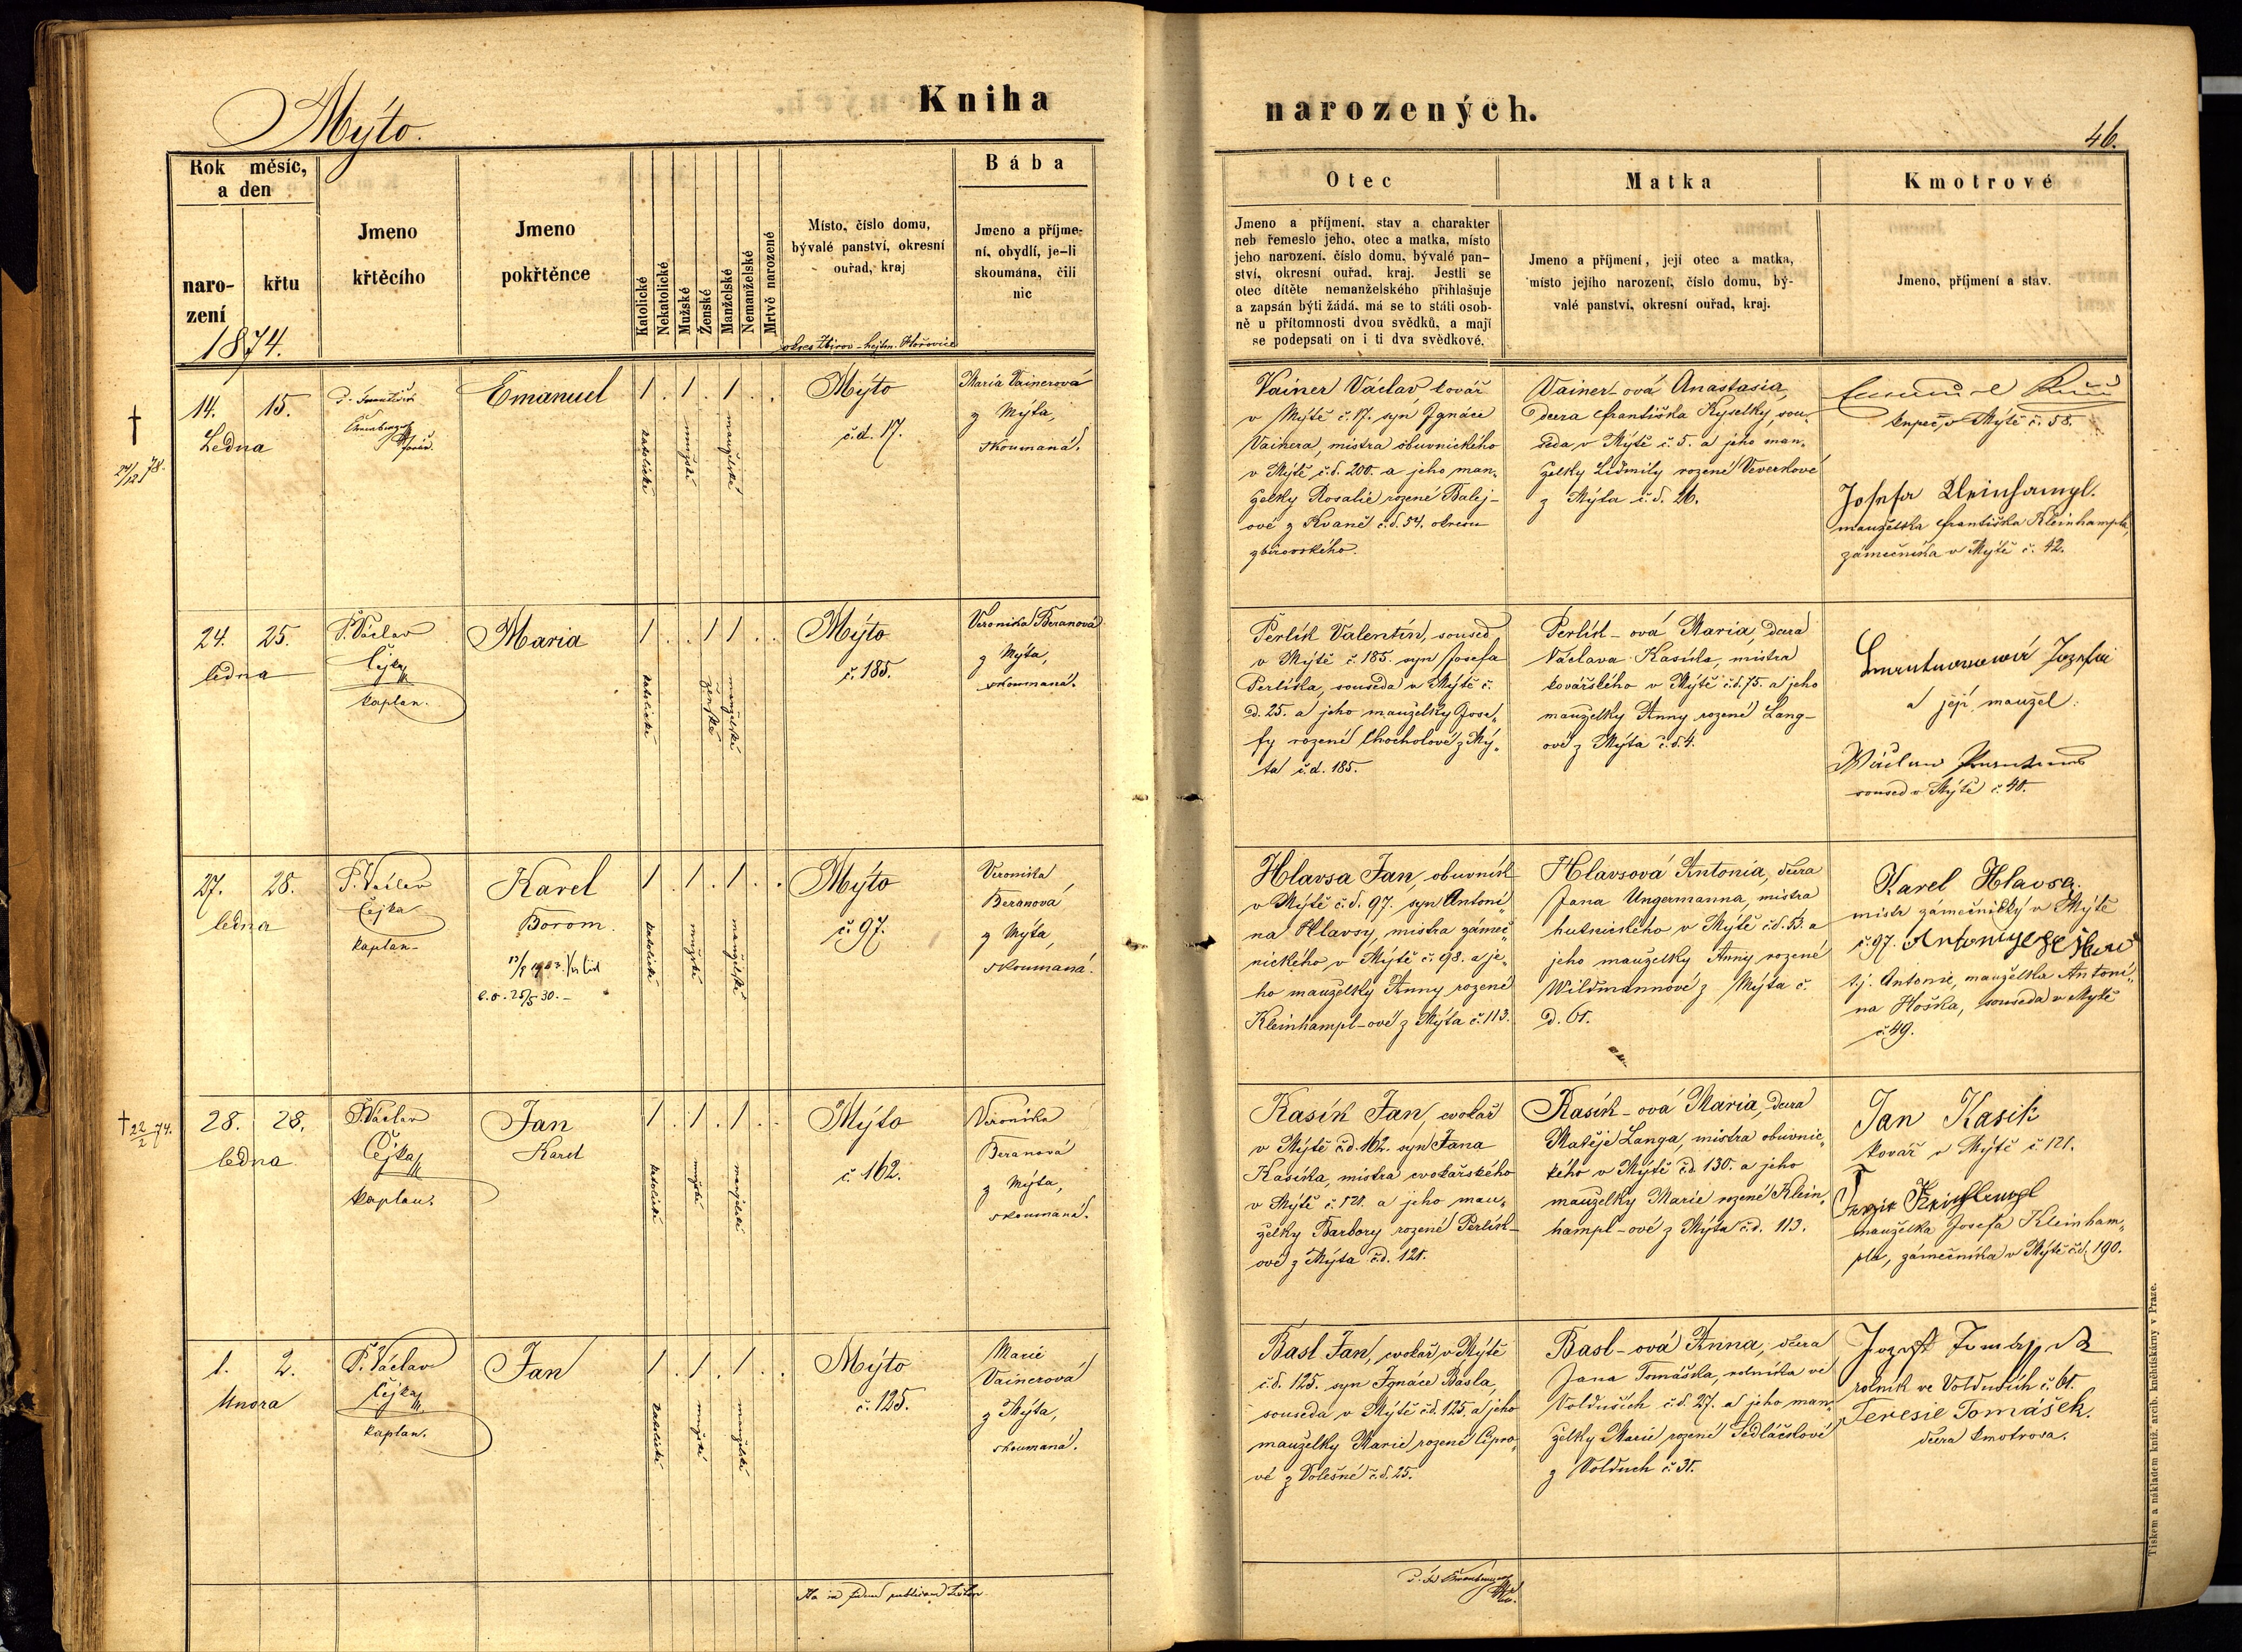 Mýto.
Kniha
narozených.
46.
Rok měsíc,
a den
naro-
zení
křtu
1874.
Jmeno
křtěcího
Jmeno
pokřtěnce
Katolické
Nekatolické
Mužské
Ženské
Manželské
Nemanželské
Mrtvě narozené
Místo, číslo domu,
bývalé panství, okresní
ouřad, kraj
okres Zbirov - hejtm. Hořovice
Bába
Jmeno a příjme-
ní, obydlí, je-li
skoumána, čili
nic
Otec
Jmeno a příjmení, stav a charakter
neb řemeslo jeho, otec a matka, místo
jeho narození, číslo domu, bývalé pan-
ství, okresní ouřad, kraj. Jestli se
otec dítěte nemanželského přihlašuje
a zapsán býti žádá, má se to státi osob-
ně u přítomnosti dvou svědků, a mají
se podepsati on i ti dva svědkové.
Matka
Jmeno a příjmení, její otec a matka,
místo jejího narození, číslo domu, bý-
valé panství, okresní ouřad, kraj.
Kmotrové
Jmeno, příjmení a stav.
†
24/12 78.
14. 15.
Ledna
Emanuel
1 . 1 . 1 . .
katolické
mužské
manželské
Mýto
č.d. 17.
Maria Vainerová
z Mýta,
skoumaná.
Vainer Václav kovář
v Mýtě č. 17. syn Ignáce
Vainera, mistra obuvnického
v Mýtě č.d. 200. a jeho man-
želky Rosalie rozené Balej-
ové z Kvaně č.d. 54. okresu
zbirovského.
Vainer-ová Anastasia,
dcera Františka Kyselky, sou-
seda v Mýtě č. 5. a jeho man-
želky Lidmily rozené Veverkové
z Mýta č.d. 26.
kupec v Mýtě č. 58.
Josefa Kleinhampl.
manželka Františka Kleinhampla,
zámečníka v Mýtě č. 42.
24. 25.
ledna
P. Václav
Čejka
kaplan.
Maria
1 . . 1 1 . .
katolické
ženské
manželské
Mýto
č. 185.
Veronika Beranová
z Mýta,
skoumaná.
Perlík Valentin, soused
v Mýtě č. 185. syn Josefa
Perlíka, souseda v Mýtě č.
d. 25. a jeho manželky Jose-
fy rozené Chocholové z Mý-
ta č.d. 185.
Perlík-ová Maria, dcera
Václava Kasíka, mistra
kovářského v Mýtě č.d. 75. a jeho
manželky Anny rozené Lang-
ové z Mýta č.d. 4.
a její manžel:
soused v Mýtě č. 40.
27. 28.
ledna
P. Václav
Čejka
kaplan-
Karel
Borom.
1 . 1 . 1 . .
katolické
mužské
manželské
Mýto
č. 97.
Veronika
Beranová
z Mýta,
skoumaná.
Hlavsa Jan, obuvník
v Mýtě č.d. 97. syn Antoní-
na Hlavsy, mistra zámeč-
nického v Mýtě č. 98. a je-
ho manželky Anny rozené
Kleinhampl-ové z Mýta č. 113.
Hlavsová Antonia, dcera
Jana Ungermanna, mistra
hutnického v Mýtě č.d. 53. a
jeho manželky Anny rozené
Wildmannové z Mýta č.
d. 61.
Karel Hlavsa.
mistr zámečnický v Mýtě
č. 97.
t.j. Antonie, manželka Antoní-
na Hoška, souseda v Mýtě
č. 49.
† 22/2 74.
28. 28.
ledna
P. Václav
Čejka
kaplan.
Jan
Karel
1 . 1 . 1 . .
katolické
mužské
manželské
Mýto
č. 162.
Veronika
Beranová
z Mýta,
skoumaná.
Kasík Jan, cvokař
v Mýtě č.d. 162. syn Jana
Kasíka, mistra cvokařského
v Mýtě č. 121. a jeho man-
želky Barbory rozené Perlík-
ové z Mýta č.d. 121.
Kasík-ová Maria, dcera
Matěje Langa, mistra obuvnic-
kého v Mýtě č.d. 130. a jeho
manželky Marie rozené Klein-
hampl-ové z Mýta č.d. 113.
Jan Kasik
kovář v Mýtě č. 121.
manželka Josefa Kleinham-
pla, zámečníka v Mýtě č.d. 190.
1. 2.
února
P. Václav
Čejka
kaplan.
Jan
1 . 1 . 1 . .
katolické
mužské
manželské
Mýto
č. 125.
Marie
Vainerová
z Mýta,
skoumaná.
Basl Jan, cvokař v Mýtě
č.d. 125. syn Ignáce Basla,
souseda v Mýtě č.d. 125. a jeho
manželky Marie rozené Cipro-
vé z Volešné č.d. 25.
Basl-ová Anna, dcera
Jana Tomáška, rolníka ve
Volduších č.d. 27. a jeho man-
želky Marie rozené Sedláčkové
z Volduch č. 31.
rolník ve Volduších č. 61.
Teresie Tomášek.
dcera kmotrova.
Tiskem a nákladem kníž. arcib. kněhtiskárny v Praze.